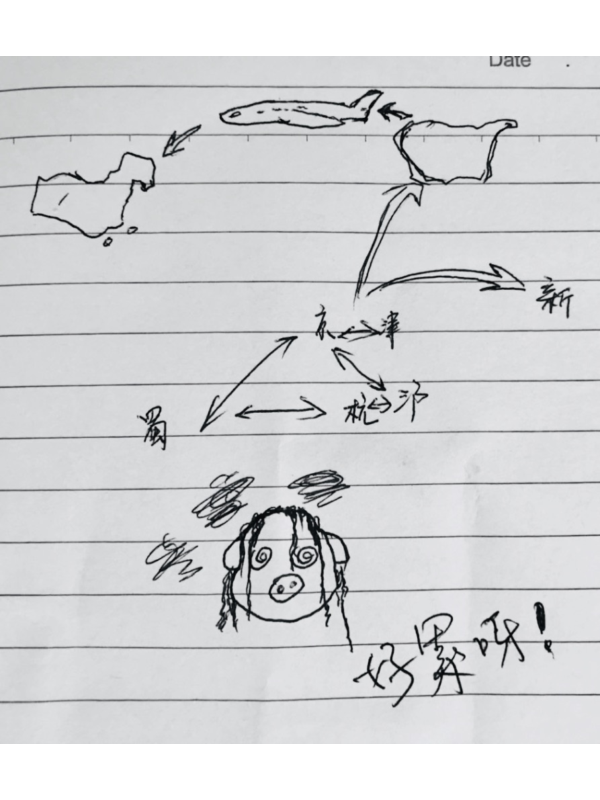 Date .
新
京 津
蜀 杭 沪
好累呀!